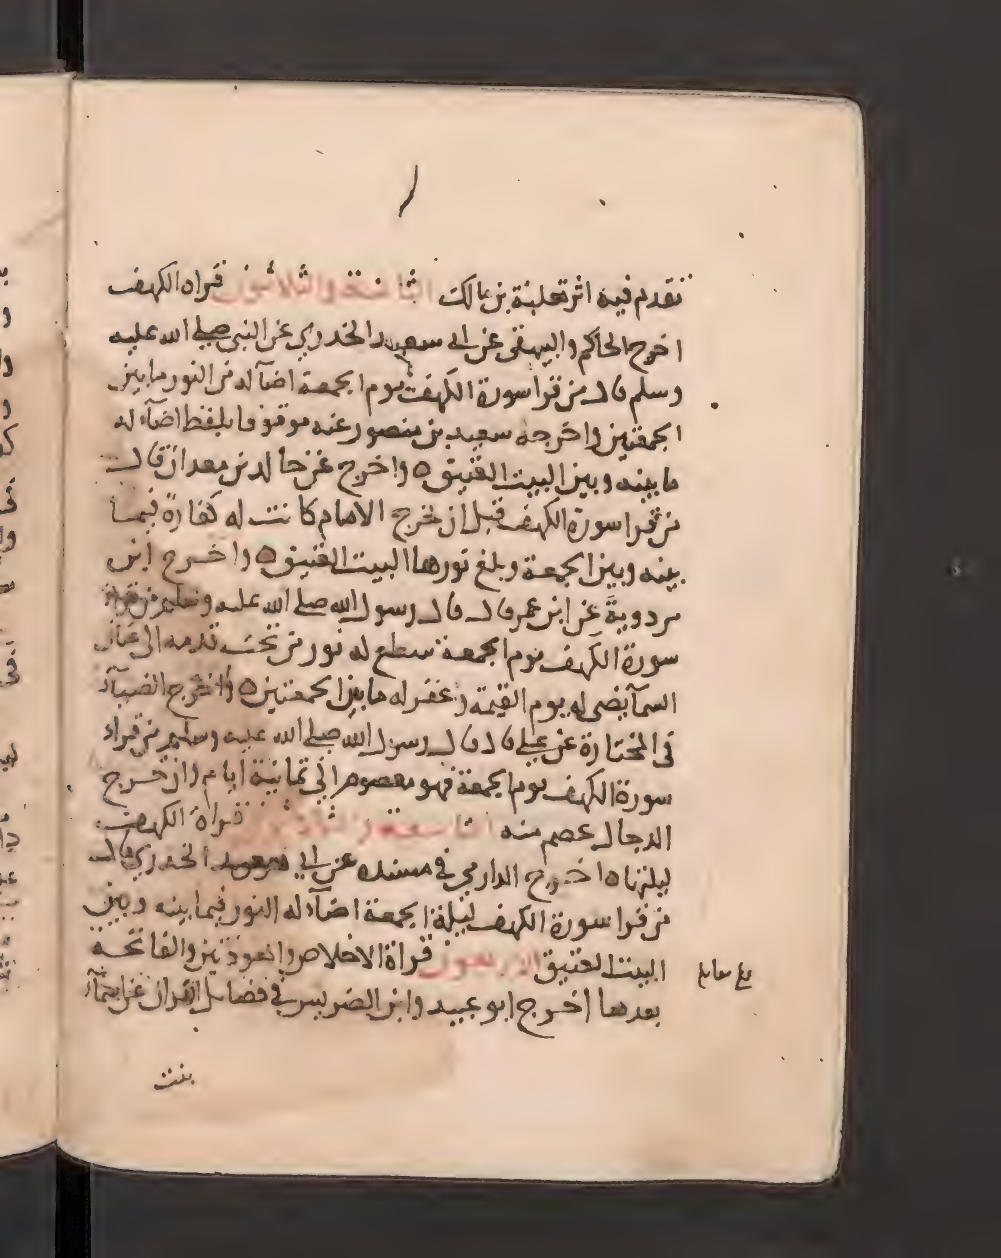 تقدم فيه اثر ثعلبة بن مالك الثامنة والثلاثون قراه الكهف
اخرج الحاكم والبيهقي عن ابي سعيد الخدري عن النبي صلى الله عليه
وسلم قال من قرا سورة الكهف يوم الجمعة اضآ له من النور ما بين
الجمعتين واخرجه سعيد بن منصور عنه موقوفا بلفظ اضآء له
ما بينه وبين البيت العتيق ٥ واخرج عن خالد بن معدان قال
من قرا سورة الكهف قبل ان يخرج الامام كانت له كفارة فيما
بينه وبين الجمعة وبلغ نورها البيت العتيق ٥ واخرج ابن
مردوية عن ابن عمر قال قال رسول الله صلى الله عليه وسلم من قراء
سورة الكهف يوم الجمعة سطع له نور من تحت قدمه الى عنان
السمآ يضي له يوم القيمة وغفر له ما بين الجمعتين ٥ واخرج الضيآء
في المختارة عن علي قال قال رسول الله صلى الله عليه وسلم من قراء
سورة الكهف يوم الجمعة فهو معصوم الي ثمانية ايام وان خرج
الدجال عصم منه التاسعة والثلاثون قراة الكهف
ليلتها ٥ اخرج الدارمي في مسنده عن ابي سعيد الخدري قال
من قرا سورة الكهف ليلة الجمعة اضآء له النور فيما بينه وبين
البيت العتيق الاربعون قراة الاخلاص والمعوذتين والفاتحة
بلغ مقابلة
بعدها اخرج ابو عبيد وابن الضريس في فضايل القران عن اسمآء
بنت